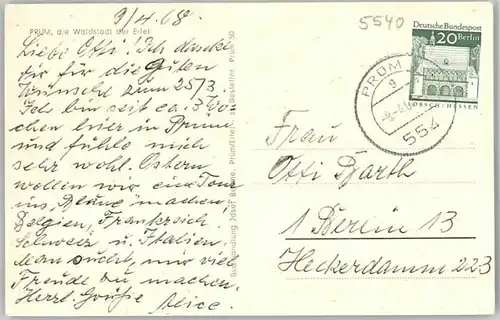 9/4.68
5540
PRÜM, die Waldstadt der Eifel
Liebe Otti! Ich danke
Dir für die guten
Wünsche zum 25/3.
Ich bin seit ca. 3 Wo-
chen hier in Prüm
und fühle mich
sehr wohl. Ostern
wollen wir eine Tour
ins Blaue machen,
Belgien, Frankreich
Schweiz u. Italien.
Man sucht, mir viel
Freude zu machen.
Herzl. Grüße
Alice.
Buchhandlung Josef Prüm/Eifel Bestellnr. Prüm 50
Deutsche Bundespost
20 Berlin
LORSCH/HESSEN
PRÜM
554
Frau
Otti Barth
1 Berlin 13
Heckerdamm 223